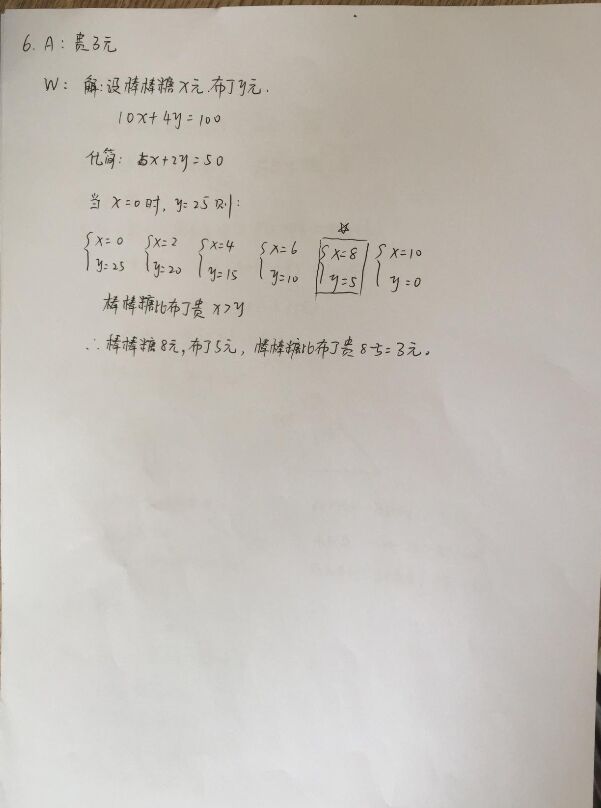 6. A: 贵3元
W: 解:设棒棒糖x元.布丁y元.
10x+4y=100
化简: 5x+2y=50
当 x=0时, y=25 则:
{x=0 {x=2 {x=4 {x=6 {x=8 {x=10
y=25 y=20 y=15 y=10 y=5 y=0
棒棒糖比布丁贵 x>y
∴棒棒糖8元,布丁5元, 棒棒糖比布丁贵8-5=3元。